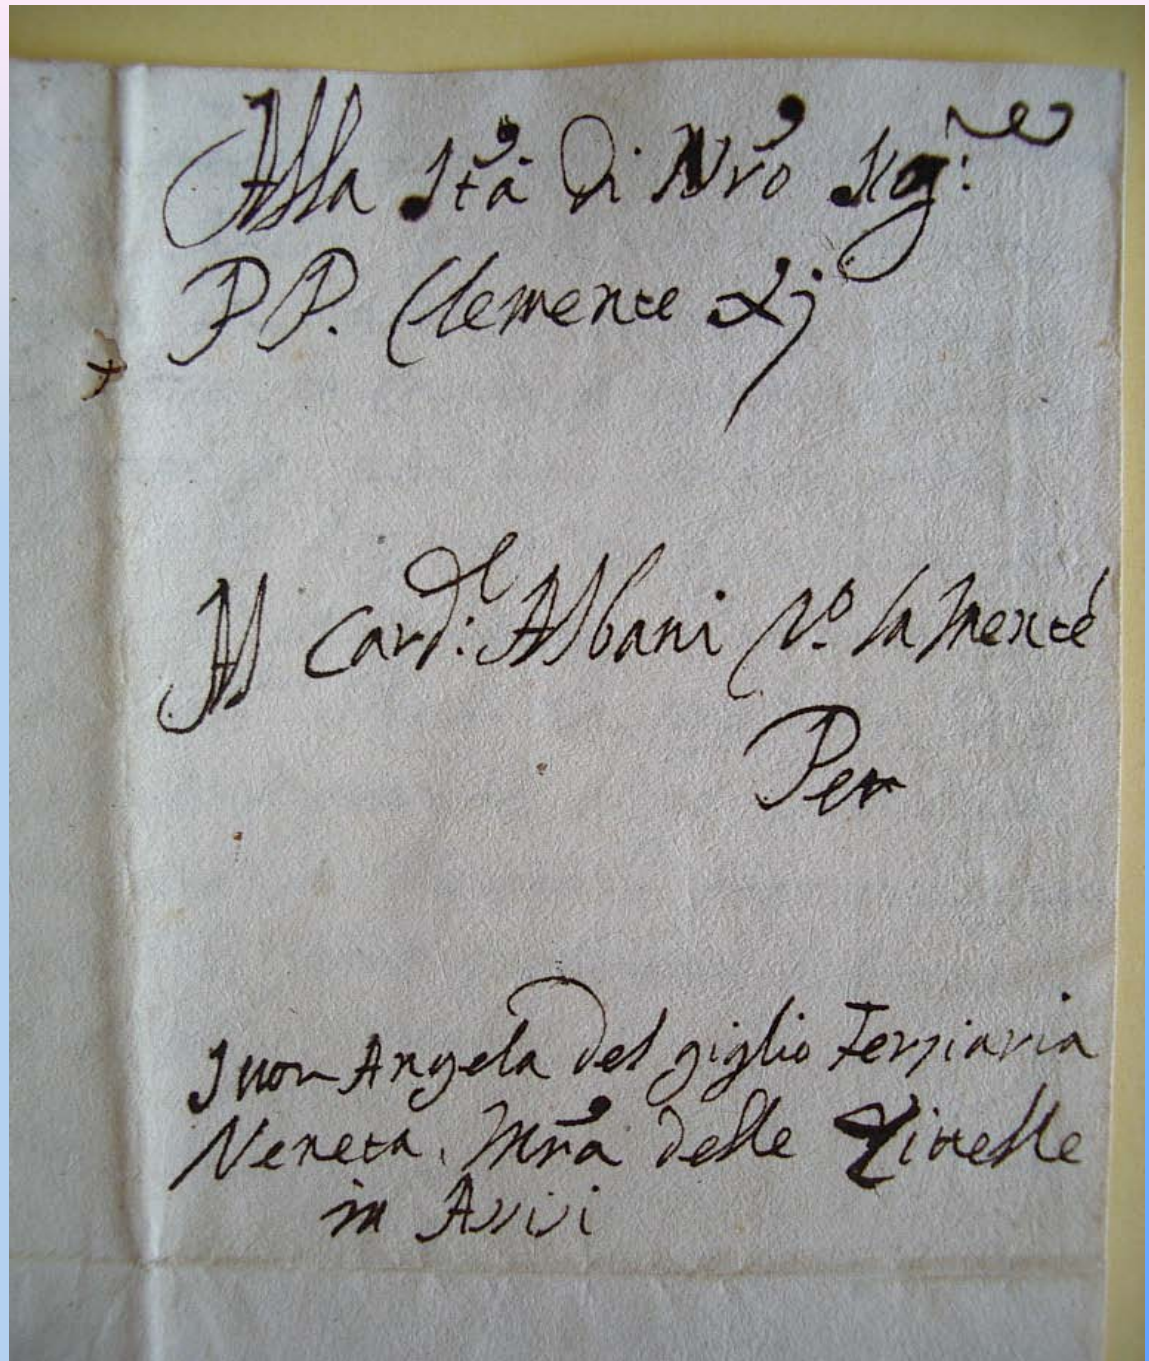 Alla Stà di Nrõ Sigre:
PP. Clemente Xj
Al Cardle: Albani No. la mente
Per
Suor Angela del giglio Terziaria
Veneta. Mrã delle Zittelle
in Assisi